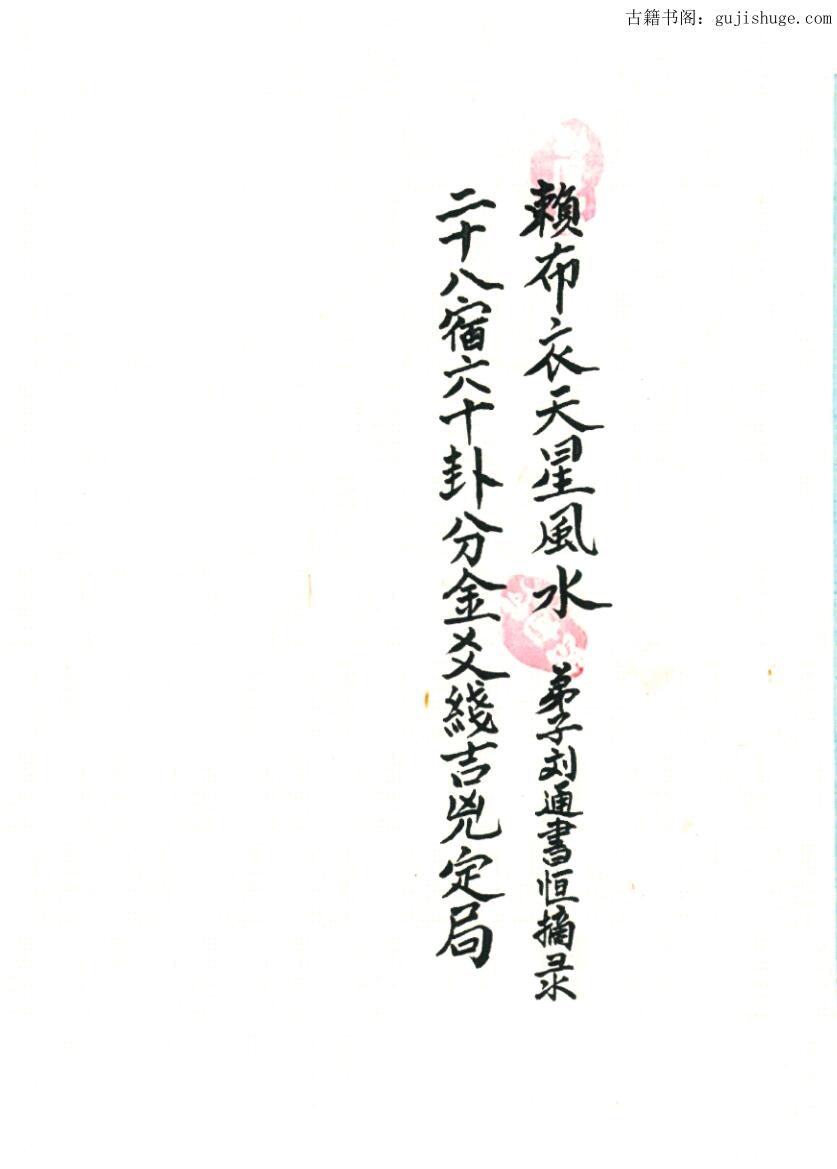 古籍书阁：gujishuge.com
賴布衣天星風水 弟子刘通書恒摘录
二十八宿六十卦分金爻綫吉兇定局